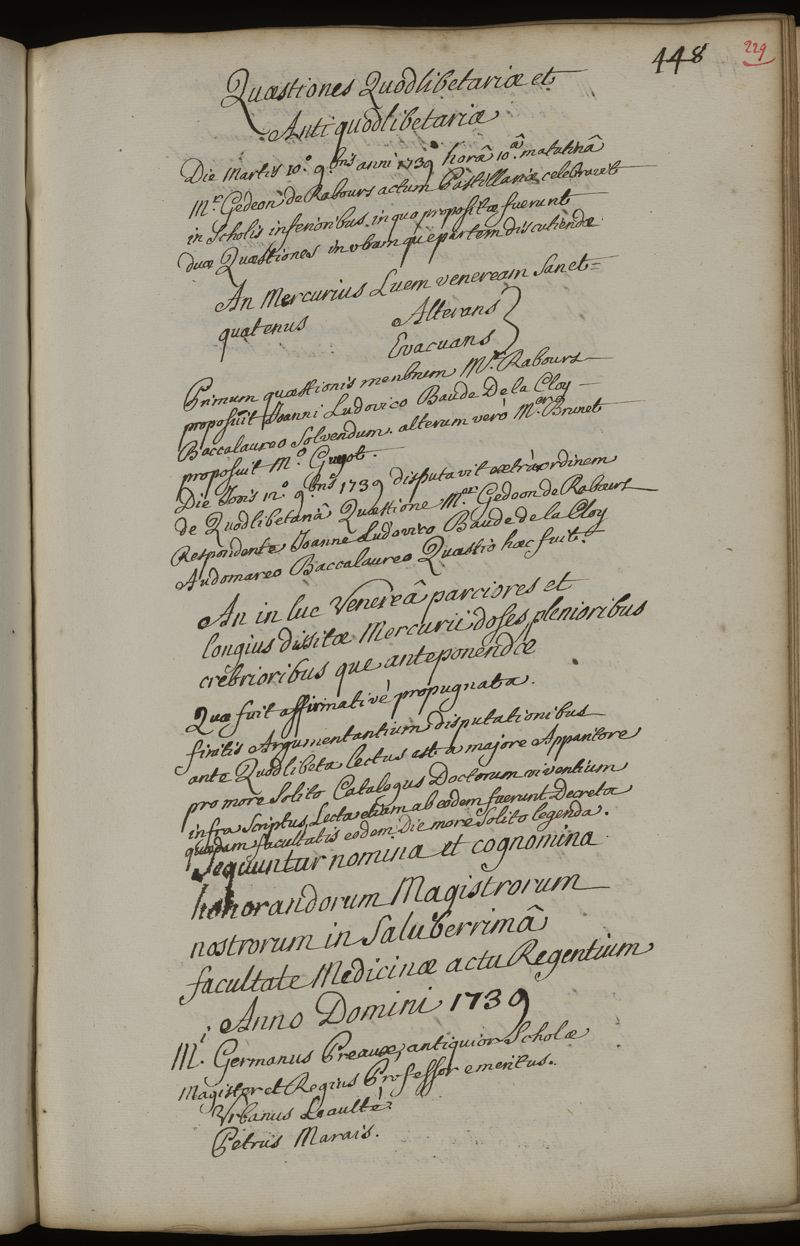 448 229
Quæstiones Quodlibetariæ et
Antiquodlibetariæ
Die Martis 10.° 9.bris anni 1739 horâ 10.â matutinâ
M.r Gedeon de Rabours actum Pastillariæ celebravit
in Scholis inferioribus, in quo propositæ fuerunt
duæ Quæstiones in vtramque partem discutiendæ.
An Mercurius Luem veneream Sanet=
quatenus Alterans
Evacuans
Primum quæstionis membrum M.r Rabours
proposuit Joanni Ludovico Baude De la Cloy
Baccalaureo Solvendum. alterum verò M.er Brunet
proposuit M.o Guyot.
Die Jovis 12.° 9.bris 1739 disputavit extrà ordinem
de Quodlibetariâ Quæstione M.er Gedeon de Rabours
Respondente Joanne Ludovico Baude de la Cloy
Audomareo Baccalaureo Quæstio hæc fuit.
An in lue Venereâ parciores et
longius dissitæ Mercurii doses plenioribus
crebrioribus que anteponendæ
Quæ fuit affirmativè propugnata.
finitis Argumentantium disputationibus
ante Quodlibeta lectus est a majore Apparitore
pro more Solito Catalogus Doctorum viventium
infra Scriptus, Lecta etiam ab eodem fuerunt Decreta
quædam facultatis eodem Die more Solito legenda.
Sequuntur nomina et cognomina
honorandorum Magistrorum
nostrorum in Saluberrimâ
facultate Medicinæ actu Regentium
Anno Domini 1739
M.i Germanus Preaux, antiquior Scholæ
Magister et Regius Professor emeritus.
Vrbanus Leaulté.
Petrus Marais.